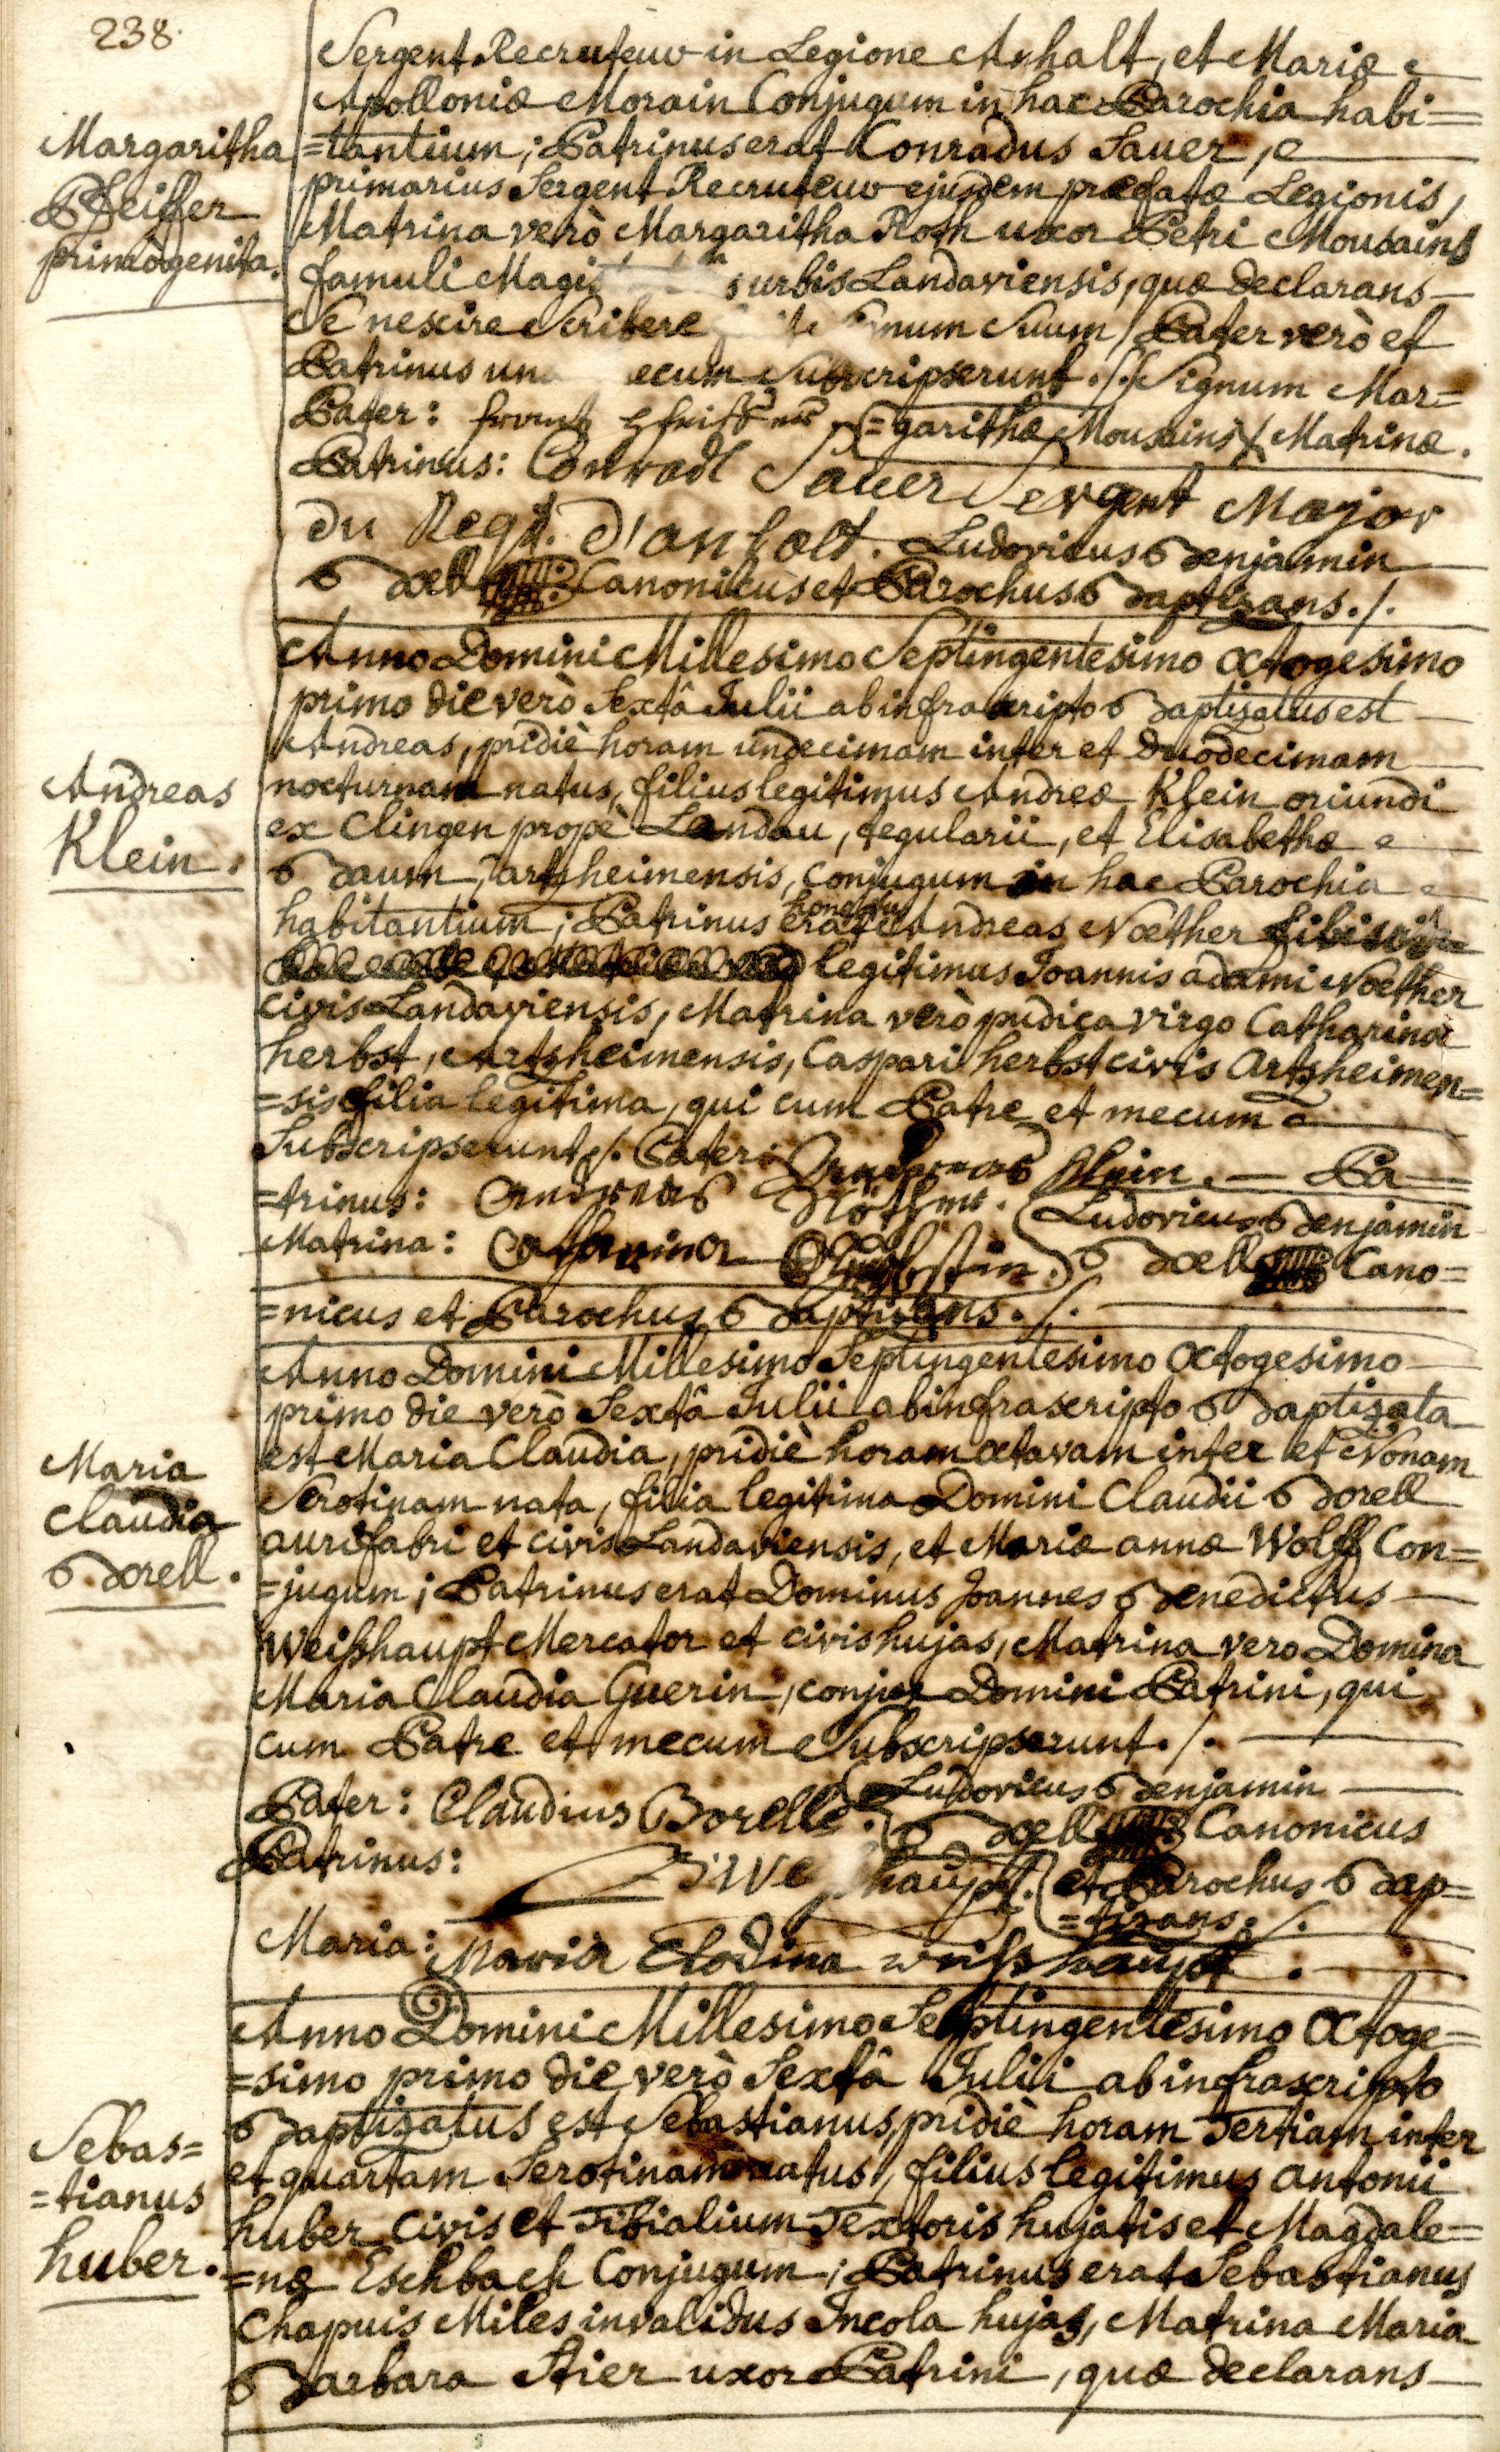 238.
Sergent Recruteur in Legione Anhalt, et Mariæ
Apolloniæ Morain Conjugum in hac Parochia habi=
Margaritha
Pfeiffer
primogenita.
=tantium; Patrinus erat Conradus Sauer,
primarius Sergent Recruteur ejusdem præfatæ Legionis,
Matrina verò Margaritha Roth uxor Petri Mousains
famuli urbis Landaviensis, quæ declarans
Se nescire Scribere Suum, Pater verò et
Patrinus ecum Subscripserunt ./. Signum Mar=
Pater: =garithæ Mousains Matrinæ.
Patrinus: Conradt Sauer Sergent Major
du Regt. d'anhalt. Ludovicus Benjamin
Boell Canonicus et Parochus Baptizans ./.
Anno Domini Millesimo Septingentesimo Octogesimo
primo die verò Sextâ Julii ab infrascripto Baptizatus est
Andreas, pridiè horam undecimam inter et duodecimam
Andreas
Klein.
nocturnam natus, filius legitimus Andreæ Klein oriundi
ex Clingen propè Landau, tegularii, et Elisabethæ
Baum, artzheimensis, conjugum in hac Parochia
habitantium; Patrinus erat Andreas Noether
legitimus Joannis adami Noether
civis Landaviensis, Matrina verò pudica virgo Catharina
herbst, Artzheimensis, Caspari herbst civis Artzheimen=
=sis filia legitima, qui cum Patre et mecum
Subscripserunt ./. Pater: Andreas Klein. — Pa=
=trinus: Andreas Nöther. Ludovicus Benjamin
Matrina: Catharina Boell Cano=
=nicus et Parochus Baptizans ./.
Anno Domini Millesimo Septingentesimo Octogesimo
primo die verò Sextâ Julii ab infrascripto Baptizata
est Maria Claudia, pridiè horam octavam inter et Nonam
Maria
Claudia
Borell.
Serotinam nata, filia legitima Domini Claudii Borell
aurifabri et civis Landaviensis, et Mariæ annæ Wolff Con=
=jugum; Patrinus erat Dominus Joannes Benedictus
Weißhaupt Mercator et civis hujas, Matrina vero Domina
Maria Claudia Guerin, conjux Domini Patrini, qui
cum Patre et mecum Subscripserunt ./.
Pater: Claudius Borelle. Ludovicus Benjamin
Boell Canonicus
Patrinus: haupt. et Parochus Bap=
=tizans ./.
Maria: Maria Clodina weißhaupt.
Anno Domini Millesimo Septingentesimo Octoge=
=simo primo die verò Sextâ Julii ab infrascripto
Baptizatus est Sebastianus, pridiè horam Tertiam inter
Sebas=
=tianus
huber.
et quartam Serotinam natus, filius legitimus antonii
huber Civis et Tibialium Textoris hujatis et Magdale=
=næ Eschbach Conjugum; Patrinus erat Sebastianus
Chapuis Miles invalidus Incola hujas, Matrina Maria
Barbara Stier uxor Patrini, quæ declarans